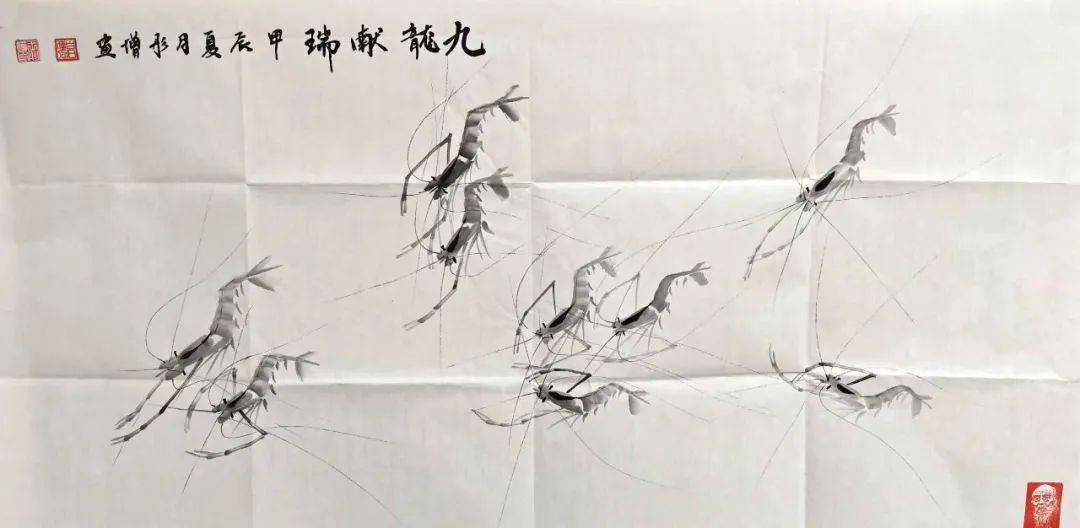 九龍献瑞 甲辰夏月彤增画